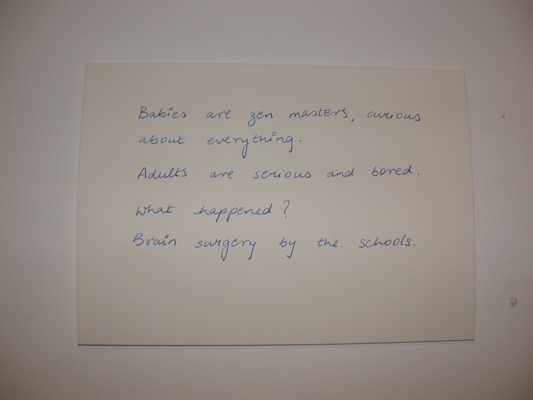 Babies are zen masters, curious
about everything.
Adults are serious and bored.
What happened?
Brain surgery by the schools.